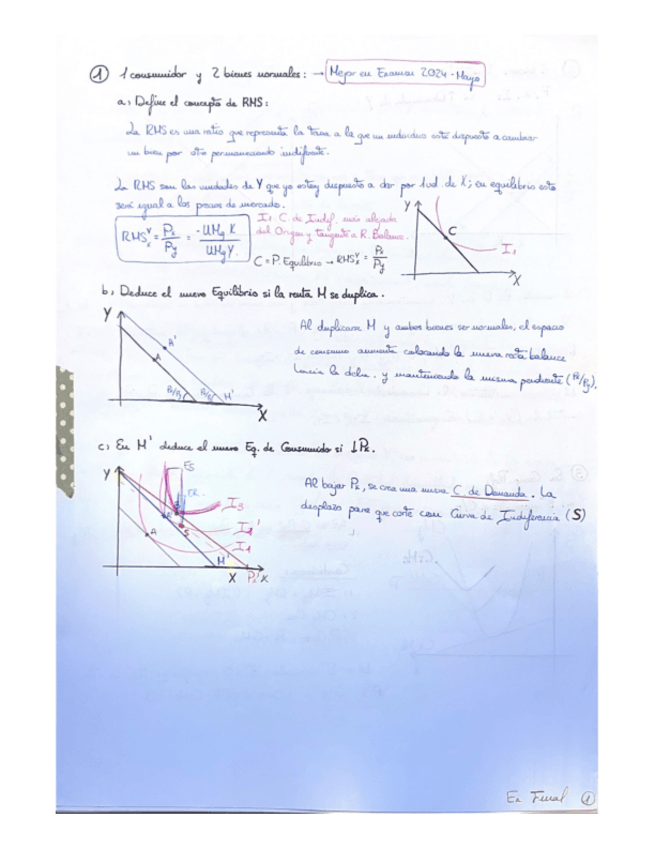 ① 1 consumidor y 2 bienes normales: → Mejor en Examen 2024 - Mayo
a) Define el concepto de RMS:
La RMS es una ratio que representa la tasa a la que un individuo está dispuesto a cambiar
un bien por otro permaneciendo indiferente.
La RMS son las unidades de Y que yo estoy dispuesto a dar por 1 ud. de X; en equilibrio esto
será igual a los precios de mercado.
RMS Y X = Px / Py = -UMg X / UMg Y.
I1 C. de Indif. más alejada
del Origen y tangente a R. Balance.
C = P. Equilibrio → RMS Y X = Px / Py
Y
C
I1
X
b) Deduce el nuevo Equilibrio si la renta M se duplica.
Y
A'
A
Px/Py
Px/Py
M'
X
Al duplicarse M y ambos bienes ser normales, el espacio
de consumo aumenta colocando la nueva recta balance
hacia la dcha. y manteniendo la misma pendiente (Px/Py).
c) En M' deduce el nuevo Eq. de Consumido si ↓Px.
Y
ES
ER
I3
I1'
I1
A'
A
S
M'
X
Px' x
Al bajar Px, se crea una nueva C. de Demanda. La
desplazo para que corte con Curva de Indiferencia (S)
Ex Final ①